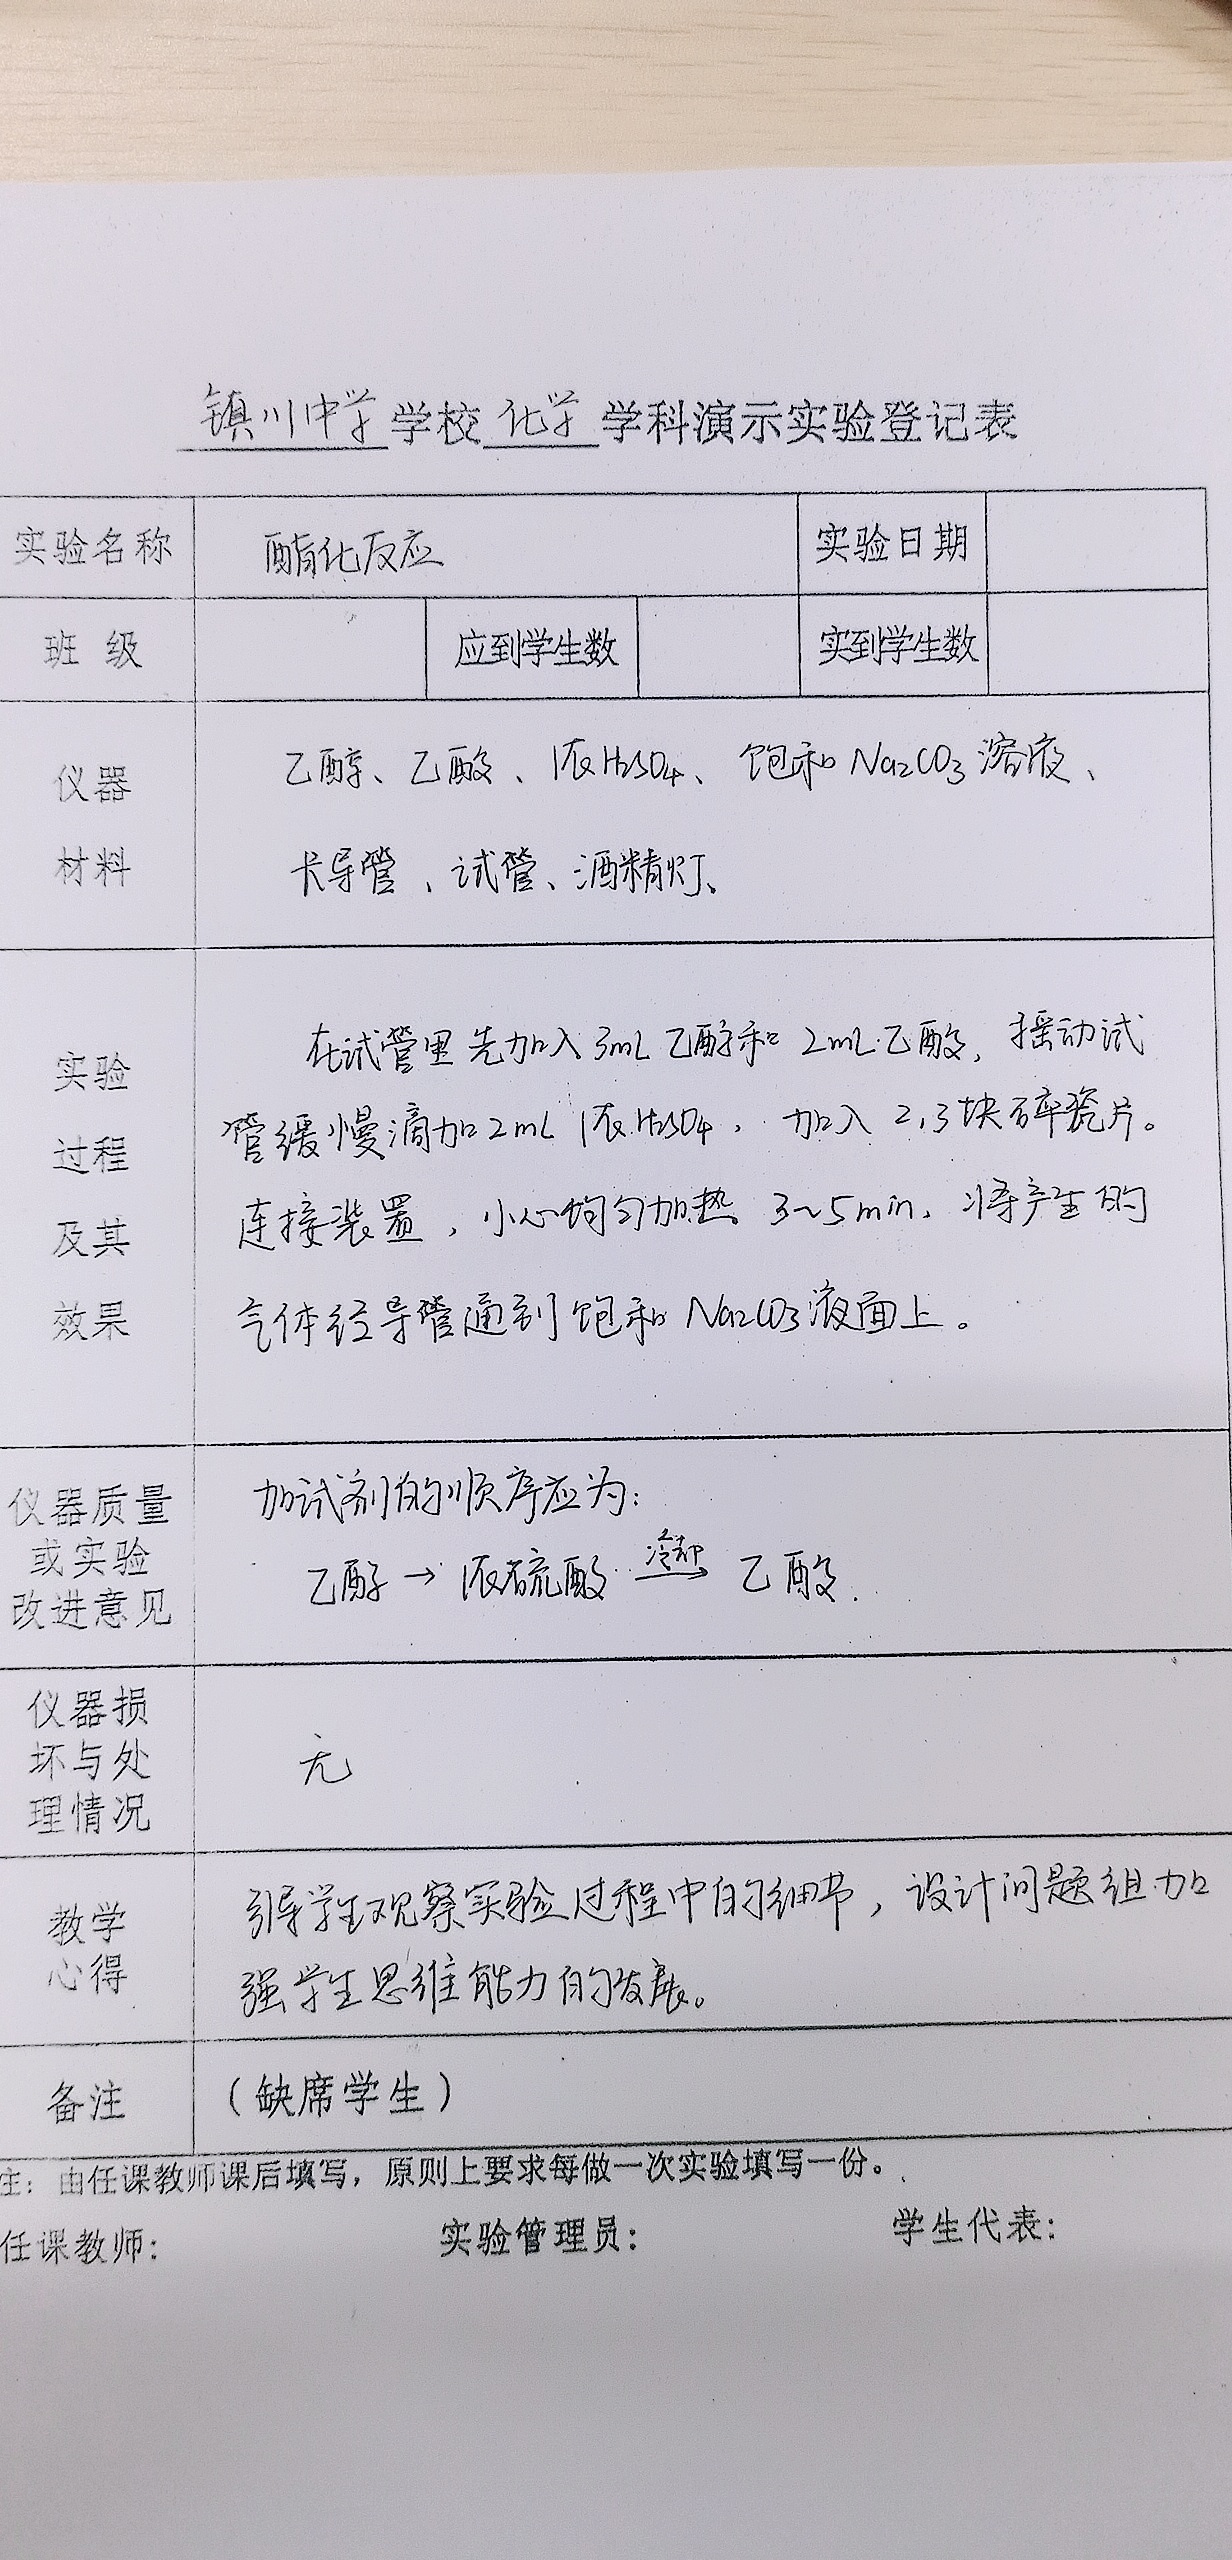 镇川中学学校化学学科演示实验登记表
实验名称 酯化反应 实验日期
班 级 应到学生数 实到学生数
仪器
材料
乙醇、乙酸、浓H₂SO₄、饱和Na₂CO₃溶液、
长导管、试管、酒精灯、
实验
过程
及其
效果
在试管里先加入3mL乙醇和2mL乙酸,摇动试
管缓慢滴加2mL浓H₂SO₄,加入2,3块碎瓷片。
连接装置,小心均匀加热3~5min,将产生的
气体经导管通到饱和Na₂CO₃液面上。
仪器质量
或实验
改进意见
加试剂的顺序应为:
冷却
乙醇→浓硫酸→乙酸.
仪器损
坏与处
理情况
无
教学
心得
引导学生观察实验过程中的细节,设计问题组加
强学生思维能力的发展。
备注 (缺席学生)
注:由任课教师课后填写,原则上要求每做一次实验填写一份。
任课教师: 实验管理员: 学生代表: